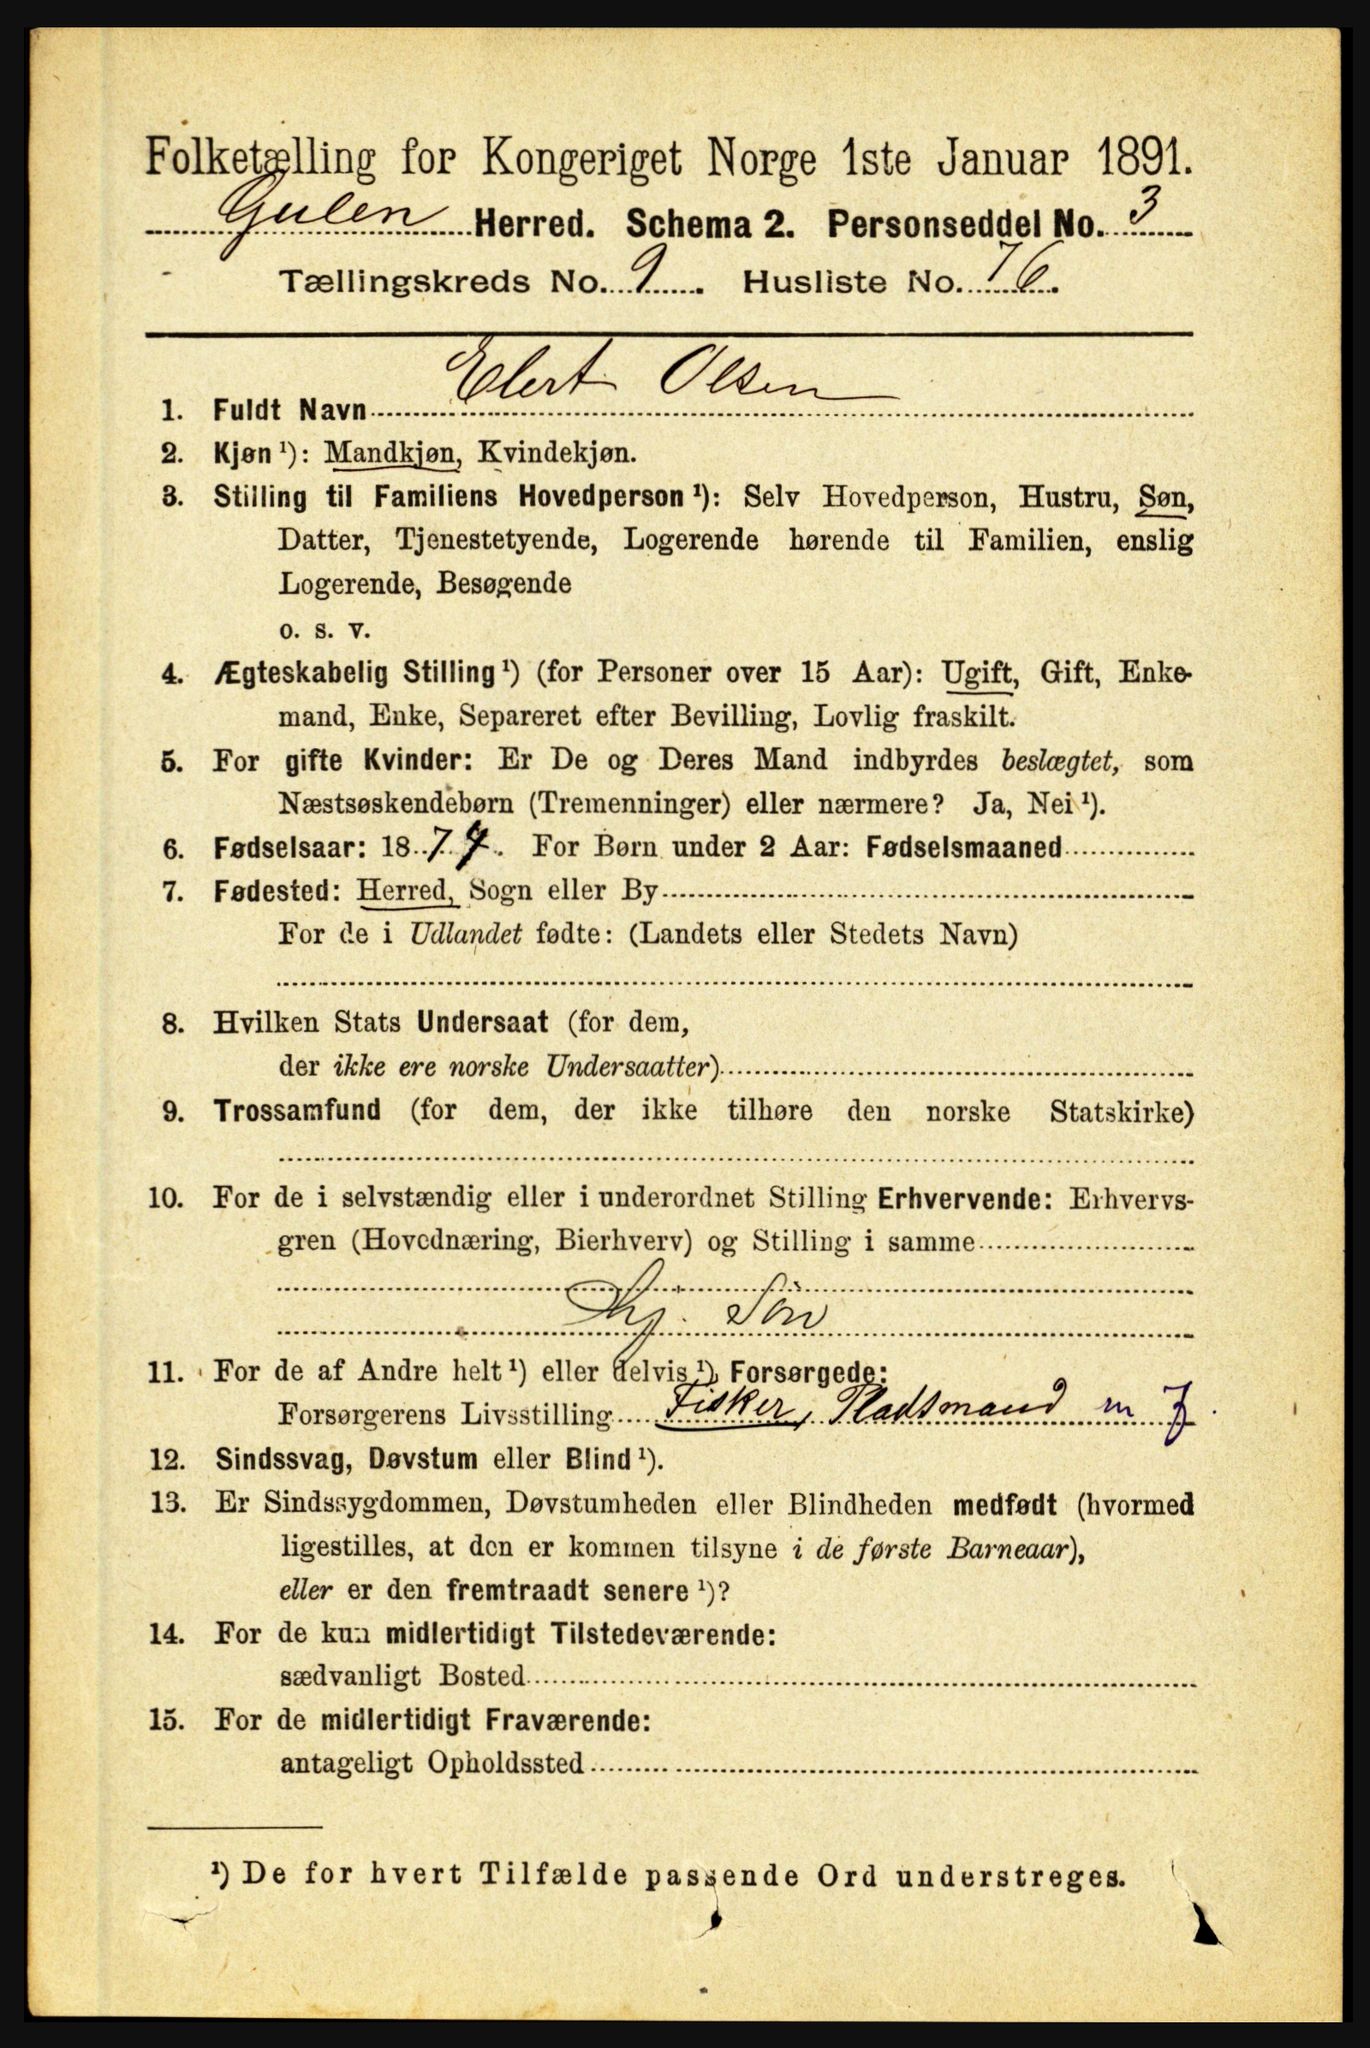 Folketælling for Kongeriget Norge 1ste Januar 1891.
Gulen Herred. Schema 2. Personseddel No. 3
Tællingskreds No. 9. Husliste No. 76.
1. Fuldt Navn Elert Olsen
2. Kjøn ¹): Mandkjøn, Kvindekjøn.
3. Stilling til Familiens Hovedperson ¹): Selv Hovedperson, Hustru, Søn,
Datter, Tjenestetyende, Logerende hørende til Familien, enslig
Logerende, Besøgende
o. s. v.
4. Ægteskabelig Stilling ¹) (for Personer over 15 Aar): Ugift, Gift, Enke-
mand, Enke, Separeret efter Bevilling, Lovlig fraskilt.
5. For gifte Kvinder: Er De og Deres Mand indbyrdes beslægtet, som
Næstsøskendebørn (Tremenninger) eller nærmere? Ja, Nei ¹).
6. Fødselsaar: 18 74. For Børn under 2 Aar: Fødselsmaaned
7. Fødested: Herred, Sogn eller By
For de i Udlandet fødte: (Landets eller Stedets Navn)
8. Hvilken Stats Undersaat (for dem,
der ikke ere norske Undersaatter)
9. Trossamfund (for dem, der ikke tilhøre den norske Statskirke)
10. For de i selvstændig eller i underordnet Stilling Erhvervende: Erhvervs-
gren (Hovednæring, Bierhverv) og Stilling i samme
Hj. Søn
11. For de af Andre helt ¹) eller delvis ¹) Forsørgede:
Forsørgerens Livsstilling Fisker, Pladsmand m J.
12. Sindssvag, Døvstum eller Blind ¹).
13. Er Sindssygdommen, Døvstumheden eller Blindheden medfødt (hvormed
ligestilles, at den er kommen tilsyne i de første Barneaar),
eller er den fremtraadt senere ¹)?
14. For de kun midlertidigt Tilstedeværende:
sædvanligt Bosted
15. For de midlertidigt Fraværende:
antageligt Opholdssted
¹) De for hvert Tilfælde passende Ord understreges.